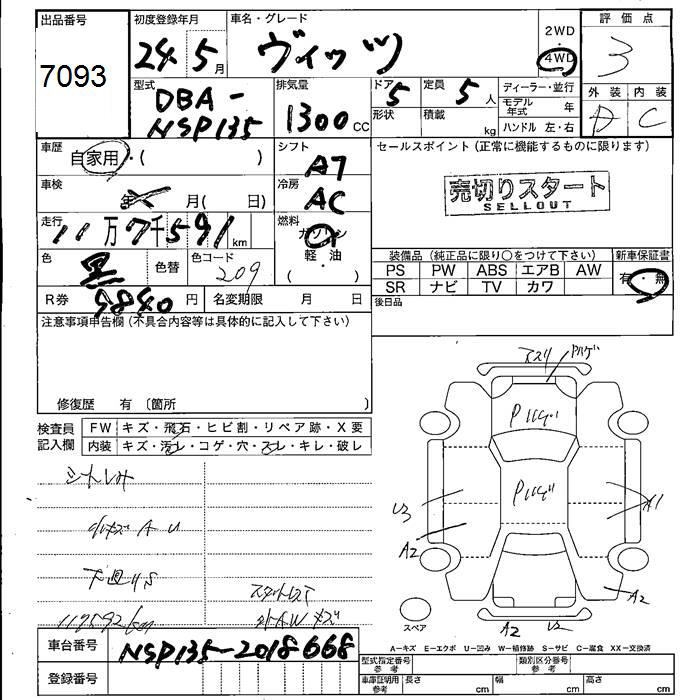 出品番号
7093
初度登録年月
24年5月
車名・グレード
ヴィッツ
2WD
4WD
評価点
3
外装 内装
D C
型式
DBA-
NSP135
排気量
1300CC
ドア 5
形状
定員 5人
積載 kg
ディーラー・並行
モデル年式 年
ハンドル 左・右
車歴
自家用・( )
シフト
AT
セールスポイント (正常に機能するものに限ります)
売切りスタート
SELLOUT
車検
年 月( 日)
冷房
AC
走行
11万7千591km
燃料
ガソリン
軽・油
( )
色
黒
色替
色コード
209
装備品 (純正品に限り○をつけて下さい)
新車保証書
PS PW ABS エアB AW
SR ナビ TV カワ
有・無
R券 9840円
名変期限 月 日
後日品
注意事項申告欄 (不具合内容等は具体的に記入して下さい)
修復歴 有 〔箇所 〕
検査員
記入欄
FW キズ・飛石・ヒビ割・リペア跡・X要
内装 キズ・汚レ・コゲ・穴・スレ・キレ・破レ
シートしみ
小キズAU
下廻りS
スタットレス
117592km
P
P
U3
A2
A1
A2
A2
U2
スペア
A−キズ E−エクボ U−凹み W−補修跡 S−サビ C−腐食 XX−交換済
車台番号
NSP135-2018668
登録番号
型式指定番号
参考
類別区分番号
参考
車庫証明用
参考
長さ cm
幅 cm
高さ cm